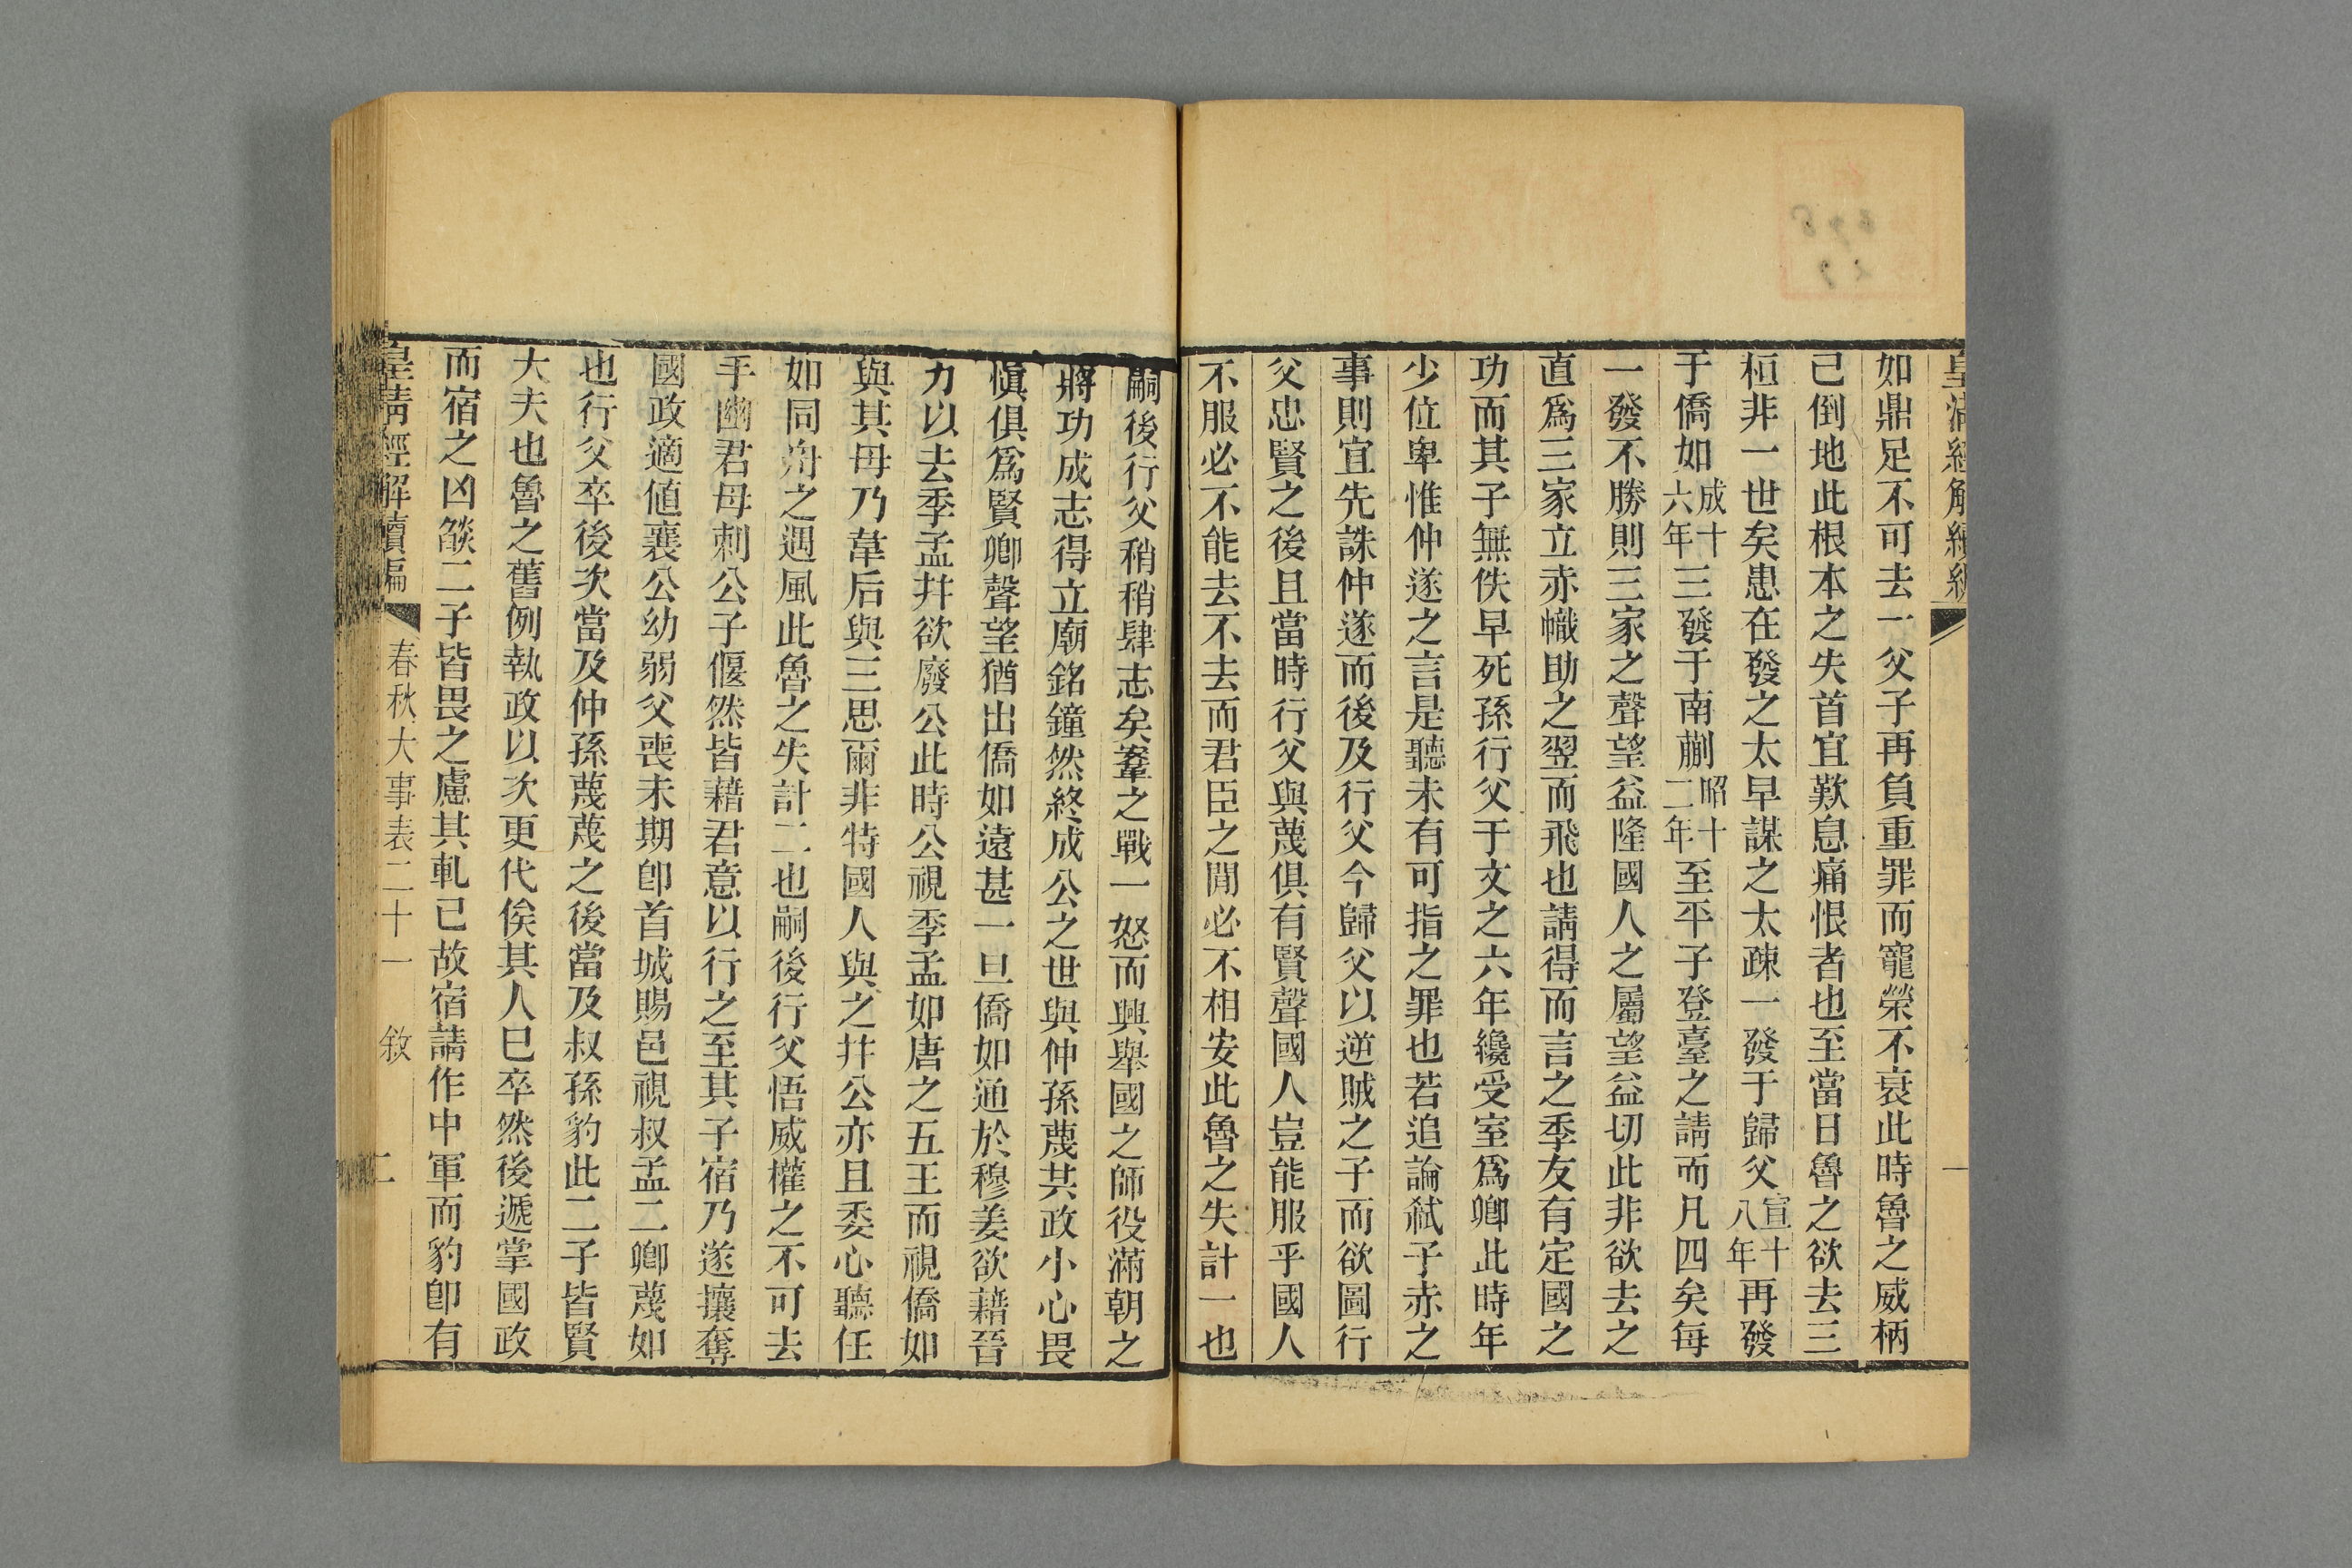 如鼎足不可去一父子再負重罪而寵榮不衰此時魯之威柄
己倒地此根本之失首宜歎息痛恨者也至當日魯之欲去三
桓非一世矣患在發之太早謀之太疎一發于歸父宣十八年再發
于僑如成十六年三發于南蒯昭十二年至平子登臺之請而凡四矣每
一發不勝則三家之聲望益隆國人之屬望益切此非欲去之
直爲三家立赤幟助之翌而飛也請得而言之季友有定國之
功而其子無佚早死孫行父于文之六年纔受室爲卿此時年
少位卑惟仲遂之言是聽未有可指之罪也若追論弑子赤之
事則宜先誅仲遂而後及行父今歸父以逆賊之子而欲圖行
父忠賢之後且當時行父與蔑俱有賢聲國人豈能服乎國人
不服必不能去不去而君臣之閒必不相安此魯之失計一也
嗣後行父稍稍肆志矣鞌之戰一怒而興舉國之師役滿朝之
將功成志得立廟銘鐘然終成公之世與仲孫蔑共政小心畏
愼俱爲賢卿聲望猶出僑如遠甚一旦僑如通於穆姜欲藉晉
力以去季孟幷欲廢公此時公視季孟如唐之五王而視僑如
與其母乃韋后與三思爾非特國人與之幷公亦且委心聽任
如同舟之遇風此魯之失計二也嗣後行父悟威權之不可去
手幽君母刺公子偃然皆藉君意以行之至其子宿乃遂攘奪
國政適値襄公幼弱父喪未期卽首城賜邑視叔孟二卿蔑如
也行父卒後次當及仲孫蔑蔑之後當及叔孫豹此二子皆賢
大夫也魯之舊例執政以次更代俟其人巳卒然後遞掌國政
而宿之凶燄二子皆畏之慮其軋己故宿請作中軍而豹卽有
皇清經解續編 春秋大事表二十一 敘 二